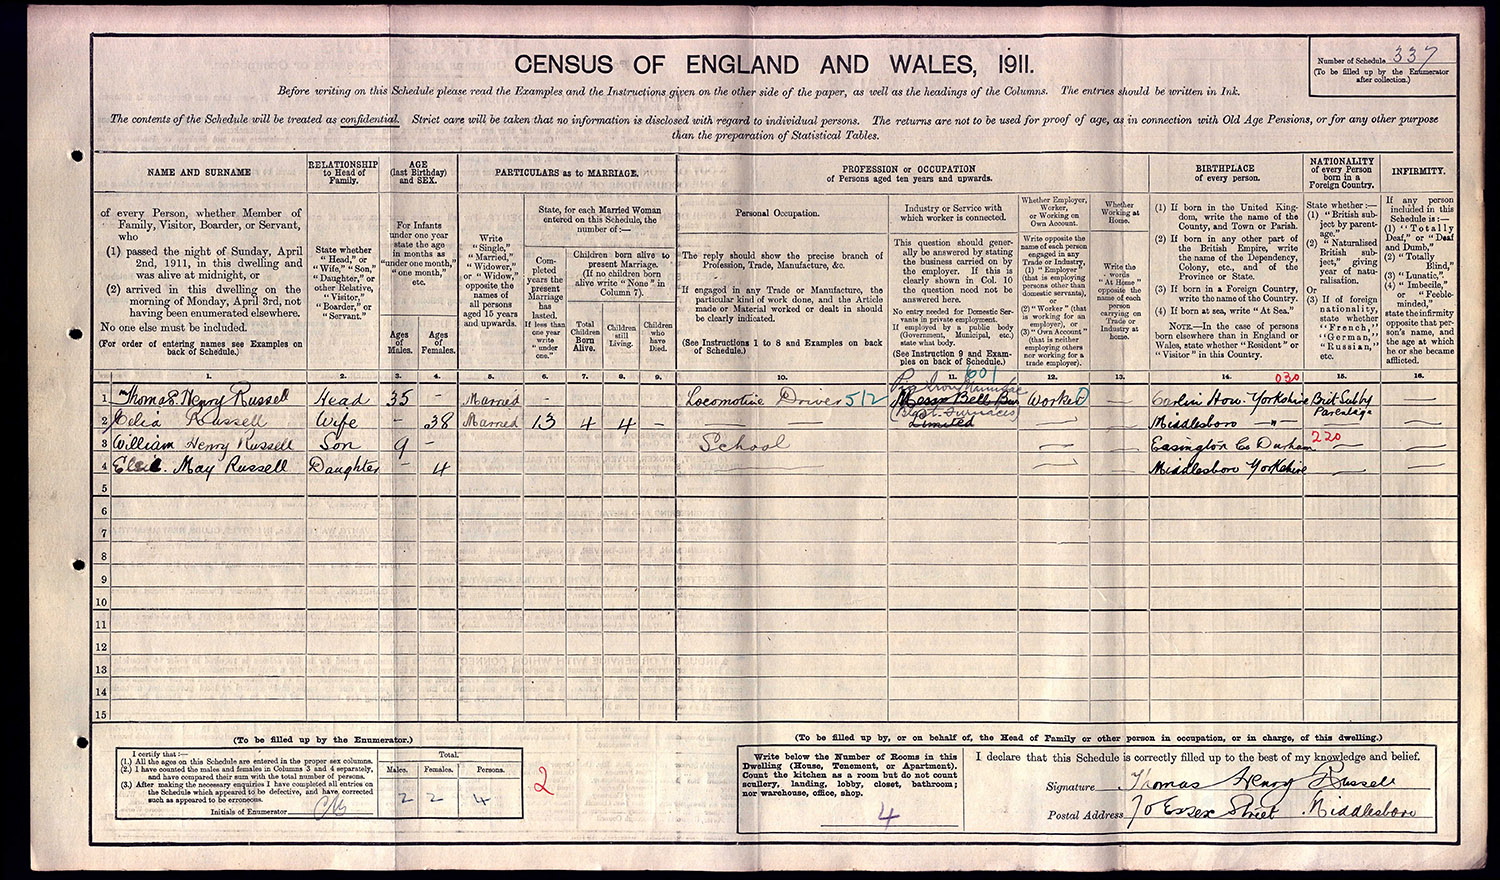 CENSUS OF ENGLAND AND WALES, 1911.
Number of Schedule 337
(To be filled up by the Enumerator
after collection.)
Before writing on this Schedule please read the Examples and the Instructions given on the other side of the paper, as well as the headings of the Columns. The entries should be written in Ink.
The contents of the Schedule will be treated as confidential. Strict care will be taken that no information is disclosed with regard to individual persons. The returns are not to be used for proof of age, as in connection with Old Age Pensions, or for any other purpose
than the preparation of Statistical Tables.
NAME AND SURNAME
of every Person, whether Member of
Family, Visitor, Boarder, or Servant,
who
(1) passed the night of Sunday, April
2nd, 1911, in this dwelling and
was alive at midnight, or
(2) arrived in this dwelling on the
morning of Monday, April 3rd, not
having been enumerated elsewhere.
No one else must be included.
(For order of entering names see Examples on
back of Schedule.)
RELATIONSHIP
to Head of
Family.
State whether
"Head," or
"Wife," "Son,"
"Daughter," or
other Relative,
"Visitor,"
"Boarder," or
"Servant."
AGE
(last Birthday)
and SEX.
For Infants
under one year
state the age
in months as
"under one month,"
"one month,"
etc.
Ages
of
Males.
Ages
of
Females.
PARTICULARS as to MARRIAGE.
Write
"Single,"
"Married,"
"Widower,"
or "Widow,"
opposite the
names of
all persons
aged 15 years
and upwards.
State, for each Married Woman
entered on this Schedule, the
number of:—
Com-
pleted
years the
present
Marriage
has
lasted.
If less than
one year
write
"under
one."
Children born alive to
present Marriage.
(If no children born
alive write "None" in
Column 7).
Total
Children
Born
Alive.
Children
still
Living.
Children
who
have
Died.
PROFESSION or OCCUPATION
of Persons aged ten years and upwards.
Personal Occupation.
The reply should show the precise branch of
Profession, Trade, Manufacture, &c.
If engaged in any Trade or Manufacture, the
particular kind of work done, and the Article
made or Material worked or dealt in should
be clearly indicated.
(See Instructions 1 to 8 and Examples on back
of Schedule.)
Industry or Service with
which worker is connected.
This question should gener-
ally be answered by stating
the business carried on by
the employer. If this is
clearly shown in Col. 10
the question need not be
answered here.
No entry needed for Domestic Ser-
vants in private employment.
If employed by a public body
(Government, Municipal, etc.)
state what body.
(See Instruction 9 and Exam-
ples on back of Schedule.)
Whether Employer,
Worker,
or Working on
Own Account.
Write opposite the
name of each person
engaged in any
Trade or Industry,
(1) "Employer"
(that is employing
persons other than
domestic servants),
or
(2) "Worker" (that
is working for an
employer), or
(3) "Own Account"
(that is neither
employing others
nor working for a
trade employer).
Whether
Working at
Home.
Write the
words
"At Home"
opposite the
name of each
person
carrying on
Trade or
Industry at
home.
BIRTHPLACE
of every person.
(1) If born in the United King-
dom, write the name of the
County, and Town or Parish.
(2) If born in any other part of
the British Empire, write
the name of the Dependency,
Colony, etc., and of the
Province or State.
(3) If born in a Foreign Country,
write the name of the Country.
(4) If born at sea, write "At Sea."
NOTE.—In the case of persons
born elsewhere than in England or
Wales, state whether "Resident" or
"Visitor" in this Country.
NATIONALITY
of every Person
born in a
Foreign Country.
State whether:—
(1) "British sub-
ject by parent-
age,"
(2) "Naturalised
British sub-
ject," giving
year of natu-
ralisation.
Or
(3) If of foreign
nationality,
state whether
"French,"
"German,"
"Russian,"
etc.
INFIRMITY.
If any person
included in this
Schedule is:—
(1) "Totally
Deaf," or "Deaf
and Dumb,"
(2) "Totally
Blind,"
(3) "Lunatic,"
(4) "Imbecile,"
or "Feeble-
minded,"
state the infirmity
opposite that per-
son's name, and
the age at which
he or she became
afflicted.
1. 2. 3. 4. 5. 6. 7. 8. 9. 10. 11. 12. 13. 14. 15. 16.
601
030
Pig Iron Manufac
1 Thomas Henry Russell Head 35 – Married – – – – Locomotive Driver 512 Messrs Bell Bros Worker – Carlin How Yorkshire Brit Sub by
Parentage
Blast Furnaces
2 Celia Russell Wife – 38 Married 13 4 4 – – Limited – – Middlesboro —"—
3 William Henry Russell Son 9 – School Easington Co Durham 220
4 Elsie May Russell Daughter – 4 Middlesboro Yorkshire
5
6
7
8
9
10
11
12
13
14
15
(To be filled up by the Enumerator.)
I certify that:—
(1.) All the ages on this Schedule are entered in the proper sex columns.
(2.) I have counted the males and females in Columns 3 and 4 separately,
and have compared their sum with the total number of persons.
(3.) After making the necessary enquiries I have completed all entries on
the Schedule which appeared to be defective, and have corrected
such as appeared to be erroneous.
Initials of Enumerator
Total.
Males. Females. Persons.
2 2 4
2
(To be filled up by, or on behalf of, the Head of Family or other person in occupation, or in charge, of this dwelling.)
Write below the Number of Rooms in this
Dwelling (House, Tenement, or Apartment).
Count the kitchen as a room but do not count
scullery, landing, lobby, closet, bathroom;
nor warehouse, office, shop.
4
I declare that this Schedule is correctly filled up to the best of my knowledge and belief.
Signature Thomas Henry Russell
Postal Address 70 Essex Street Middlesboro